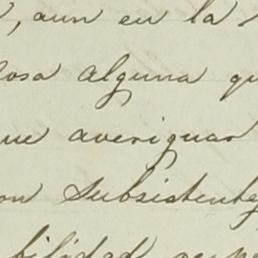 , aun en la
cosa alguna qu
ue averiguar
on subsistente
bilidad